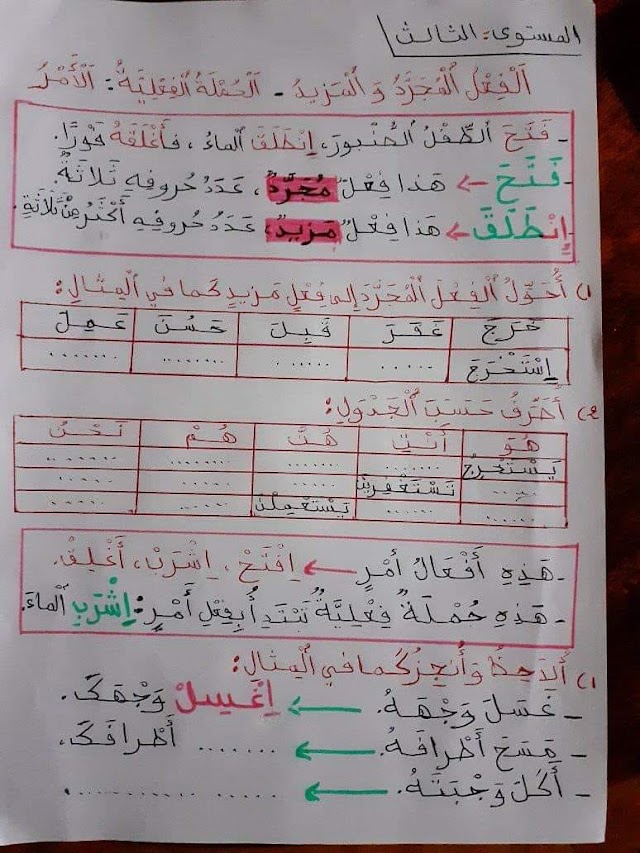 المستوى: الثالث
اَلْفِعْلُ الْمُجَرَّدُ وَ الْمَزِيدُ - اَلْجُمْلَةُ الْفِعْلِيَّةُ: اَلْأَمْرُ
- فَتَحَ الطِّفْلُ الصُّنْبورَ، اِنْطَلَقَ الْماءُ، فَأَغْلَقَهُ فَوْرًا.
- فَتَحَ ← هَذا فِعْلٌ مُجَرَّدٌ، عَدَدُ حُروفِهِ ثَلاثَةٌ.
- اِنْطَلَقَ ← هَذا فِعْلٌ مَزيدٌ، عَدَدُ حُروفِهِ أَكْثَرُ مِنْ ثَلاثَةٍ.
1) أُحَوِّلُ الْفِعْلَ الْمُجَرَّدَ إِلى فِعْلٍ مَزيدٍ كَما في الْمِثالِ:
خَرَجَ غَفَرَ قَبِلَ حَسُنَ عَمِلَ
اِسْتَخْرَجَ ...... ...... ....... .......
2) أُصَرِّفُ حَسَبَ الْجَدْوَلِ:
هُوَ أَنْتِ هُنَّ هُمْ نَحْنُ
يَسْتَخْرِجُ ....... ....... ....... .......
..... تَسْتَغْفِرينَ ....... ....... .......
...... ...... يَسْتَعْمِلْنَ ....... .......
- هَذِهِ أَفْعَالُ أَمْرٍ ← اِفْتَحْ، اِشْرَبْ، أَغْلِقْ.
- هَذِهِ جُمْلَةٌ فِعْلِيَّةٌ تَبْتَدِأُ بِفِعْلِ أَمْرٍ: اِشْرَبِ الْماءَ.
1) أُلاحِظُ وَأُنْجِزُ كَما في الْمِثالِ:
- غَسَلَ وَجْهَهُ. ← اِغْسِلْ وَجْهَكَ.
- مَسَحَ أَطْرافَهُ. ← ....... أَطْرافَكَ.
- أَكَلَ وَجْبَتَهُ. ← ...... ..........